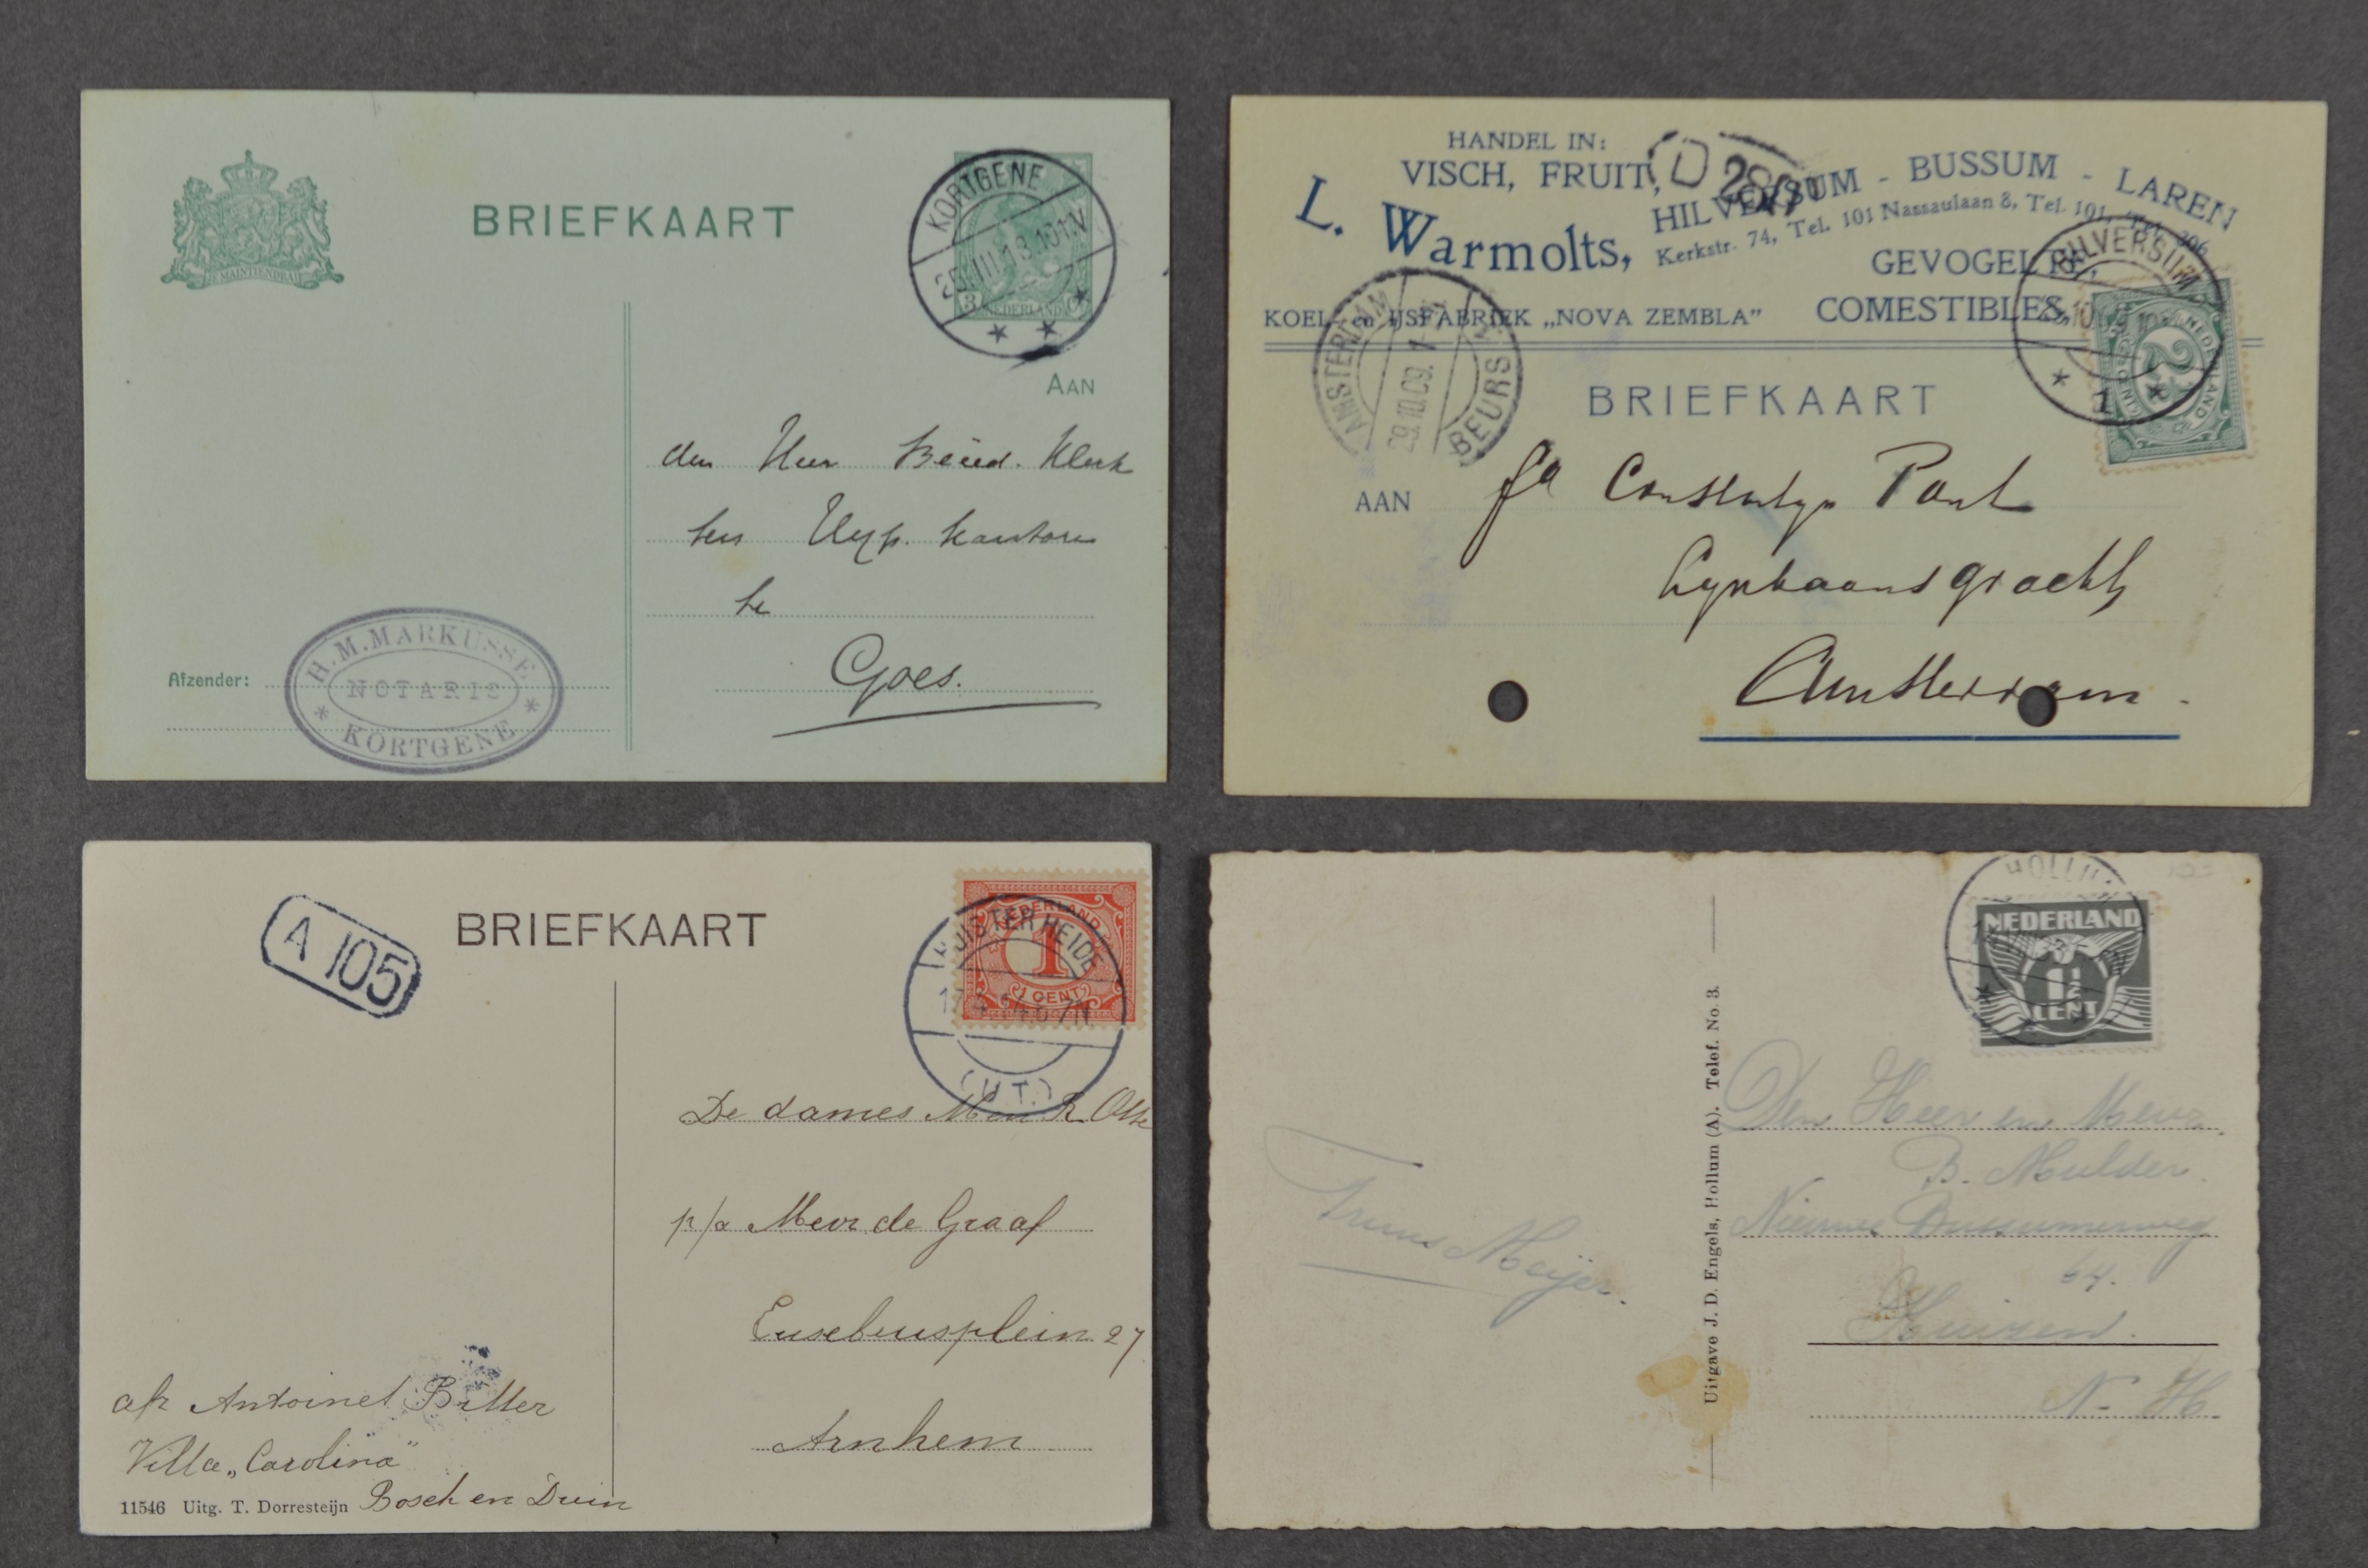 JE MAINTIENDRAI
BRIEFKAART
KORTGENE
25.III.18.10 1.N
3 NEDERLAND
AAN
den Heer Bëëd. Klerk
ten Hyp. kantore
te
Goes.
Afzender:
H. M. MARKUSSE
NOTARIS
KORTGENE
HANDEL IN:
VISCH, FRUIT,
L. Warmolts,
HILVERSUM - BUSSUM - LAREN
Kerkstr. 74, Tel. 101 Nassaulaan 8, Tel. 101, Tel. 206
GEVOGELTE,
KOEL- en IJSFABRIEK „NOVA ZEMBLA”
COMESTIBLES,
D
HILVERSUM
1
AMSTERDAM
29.10.09. 1-
BEURS
NEDERLAND
BRIEFKAART
AAN
fa Constantyn Pant
Lynbaansgracht
Amsterdam.
A 105
BRIEFKAART
NEDERLAND
1
1 CENT
HUISTER HEIDE
(UT.)
De dames M en R Otte
p/a Mevr. de Graaf
Eusebiusplein 27
Arnhem
afz Antoinet Bitter
Villa „Carolina”
Bosch en Duin
11546 Uitg. T. Dorresteijn
HOLLUM
NEDERLAND
1½
CENT
Den Heer en Mevr.
B. Mulder.
Nieuwe Bussumerweg
64.
Huizen.
N. H.
Truus Meijer.
Uitgave J. D. Engels, Hollum (A). Telef. No. 3.